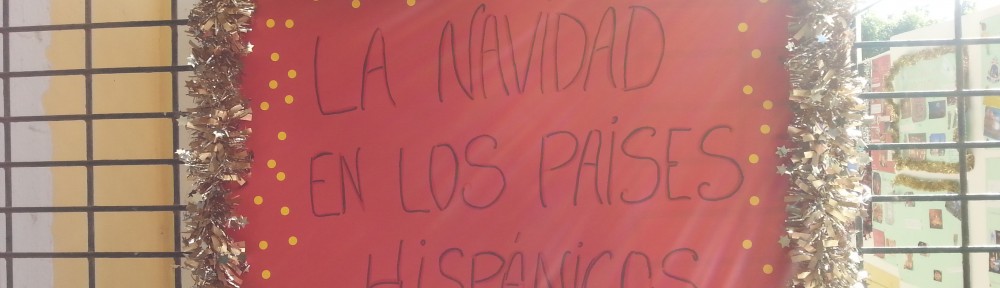 LA NAVIDAD
EN LOS PAÍSES
HISPÁNICOS